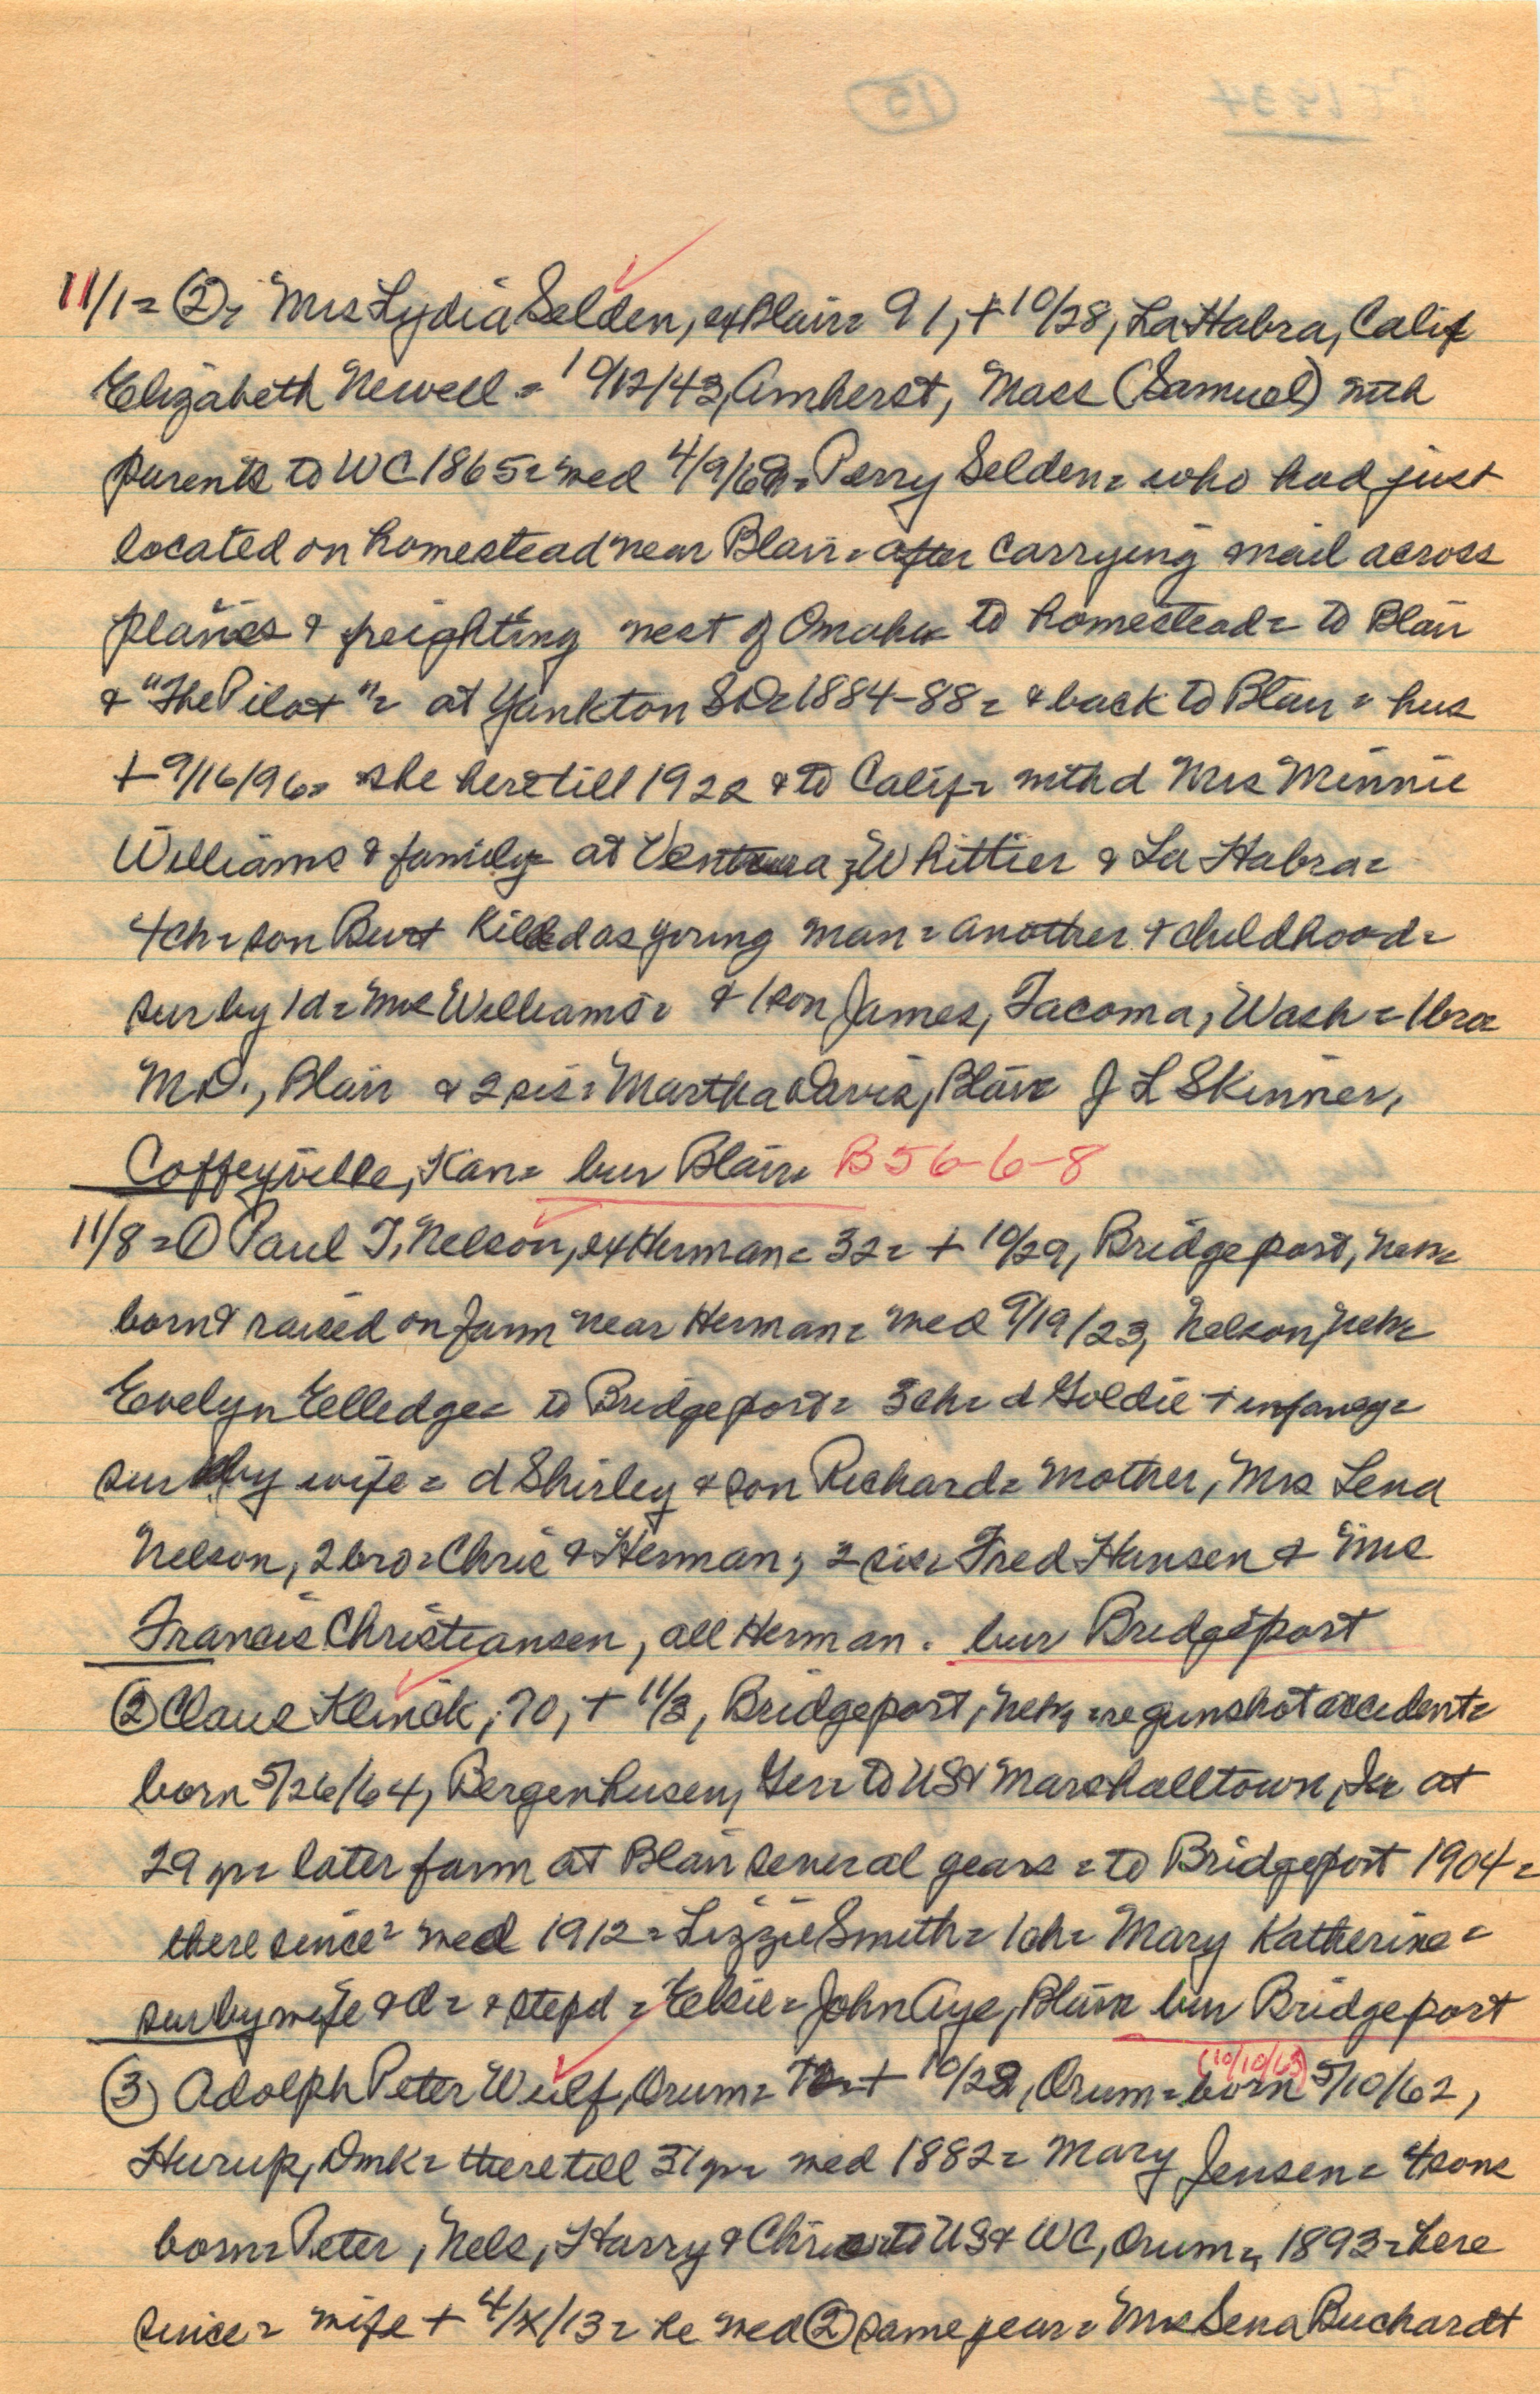 11/1= ②= Mrs Lydia Selden, ex Blair= 91, + 10/28, La Habra, Calif
Elizabeth Newell = 10/12/43, Amherst, Mass (Samuel) with
parents to WC 1865= wed 4/9/68= Perry Selden= who had just
located on homestead near Blair= after carrying mail across
plaines & freighting west of Omaha to homestead= to Blair
& "The Pilot"= at Yankton SD= 1884-88= & back to Blair= hus
+ 9/16/96= she here till 1922 & to Calif= with d Mrs Minnie
Williams & family= at Ventura, Whittier & La Habra=
4ch= son Burt killed as young man= another + childhood=
sur by 1d= Mrs Williams= & 1 son James, Tacoma, Wash= 1 bro=
M.D., Blair & 2 sis= Martha Davis, Blair J L Skinner,
Coffeyville, Kan= bur Blair= B56-6-8
11/8=① Paul T, Nelson, ex Herman= 32= + 10/29, Bridgeport, Neb=
born & raised on farm near Herman= wed 9/19/23, Nelson, Neb=
Evelyn Elledge= to Bridgeport= 3ch= d Goldie + infancy=
sur by wife= d Shirley & son Richard= mother, Mrs Lena
Nelson, 2 bro= Chris & Herman, 2 sis= Fred Hansen & Mrs
Francis Christiansen, all Herman. bur Bridgeport
② Claus Klinck, 70, + 11/3, Bridgeport, Neb, =re gunshot accident=
born 5/26/64, Bergenhusen, Ger= to US & Marshalltown, Ia at
29 yr= later farm at Blair several years= to Bridgeport 1904=
there since= wed 1912= Lizzie Smith= 1ch= Mary Katherine=
sur by wife & d= & stepd= Elsie= John Aye, Blair bur Bridgeport
(10/10/63)
③ Adolph Peter Wulf, Orum= + 10/28, Orum= born 5/10/62,
Hurup, Dmk= there till 31 yr= wed 1882= Mary Jensen= 4 sons
born= Peter, Nels, Harry & Chris= to US & WC, Orum, 1893= here
since= wife + 4/x/13= he wed ② same year= Mrs Sena Buchardt